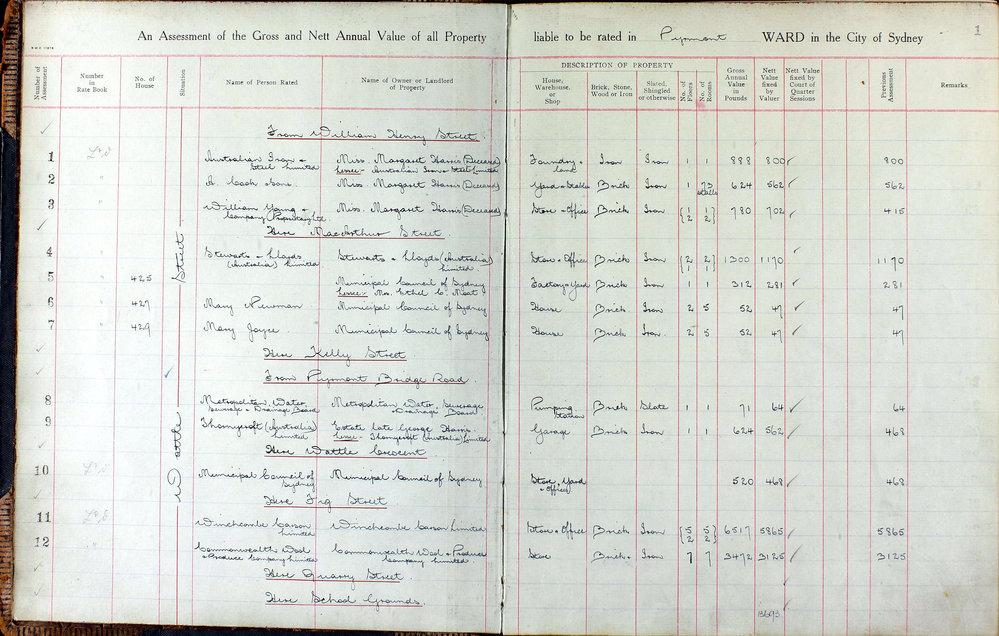 An Assessment of the Gross and Nett Annual Value of all Property liable to be rated in Pyrmont WARD in the City of Sydney
1
DESCRIPTION OF PROPERTY
Number of Assessment
Number in Rate Book
No. of House
Situation
Name of Person Rated
Name of Owner or Landlord of Property
House, Warehouse, or Shop
Brick, Stone, Wood or Iron
Slated, Shingled or otherwise
No. of Floors
No. of Rooms
Gross Annual Value in Pounds
Nett Value fixed by Valuer
Nett Value fixed by Court of Quarter Sessions
Previous Assessment
Remarks
Wattle Street
From William Henry Street.
1 Australian Iron & Steel Limited Miss. Margaret Harris (Deceased) Foundry & Iron Iron 1 1 888 800 800
Lessee - Australian Iron & Steel Limited land
2 A. Cash Sons. Miss. Margaret Harris (Deceased) Yard & Stables Brick Iron 1 73 stalls 624 562 562
3 William Young & Miss. Margaret Harris (Deceased) Store & Office Brick Iron {1 1} 780 702 415
Company 2 2
Here MacArthur Street.
4 Stewarts & Lloyds Stewarts & Lloyds (Australia) Store & Office Brick Iron {2 2} 1300 1170 1170
(Australia) Limited Limited. 1 1
5 425 Municipal Council of Sydney Factory & Yard Brick Iron 1 1 312 281 281
Lessee - Mrs. Ethel C.
6 427 Mary Newman Municipal Council of Sydney House Brick Iron 2 5 52 47 47
7 429 Mary Joyce. Municipal Council of Sydney House Brick Iron 2 5 52 47 47
Here Kelly Street
From Pyrmont Bridge Road.
8 Metropolitan Water Metropolitan Water, Sewerage Pumping Brick Slate 1 1 71 64 64
Sewerage & Drainage Board & Drainage Board Station
9 Thornycroft (Australia) Estate late George Harris. Garage Brick Iron 1 1 624 562 468
Limited Lessee - Thornycroft (Australia) Limited
Here Wattle Crescent
10 Municipal Council of Municipal Council of Sydney Store, Yard 520 468 468
Sydney & Office
Here Fig Street
11 Winchcombe Carson Winchcombe Carson Limited Store & Office Brick Iron {5 5} 6517 5865 5865
Limited 2 2
12 Commonwealth Wool Commonwealth Wool & Produce Store Brick Iron 7 7 3472 3125 3125
& Produce Company Limited Company Limited.
Here Quarry Street.
Here School Grounds.
13693